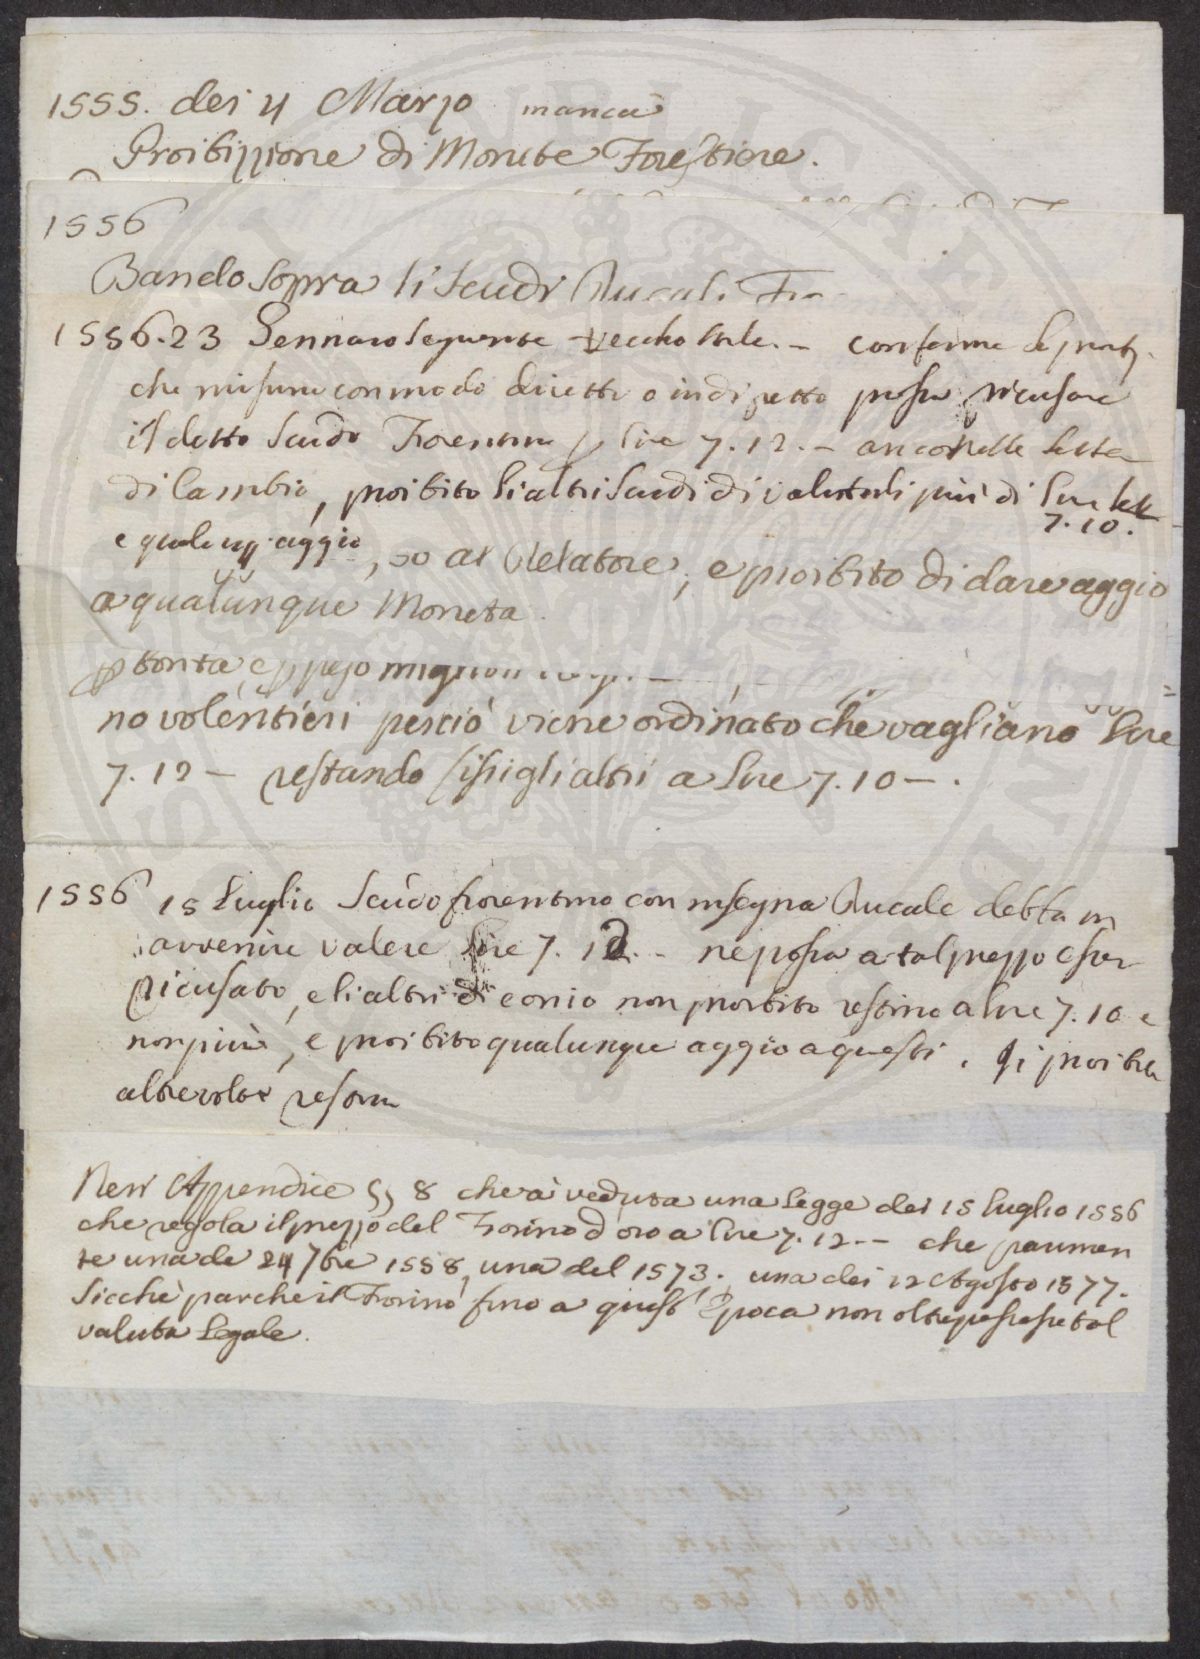 1555. dei 4 Marzo manca
Proibizione di Monete Forestiere.
1556
Bando sopra li scudi Ducali
1556. 23 Gennaro seguente vecchio stile. - conferma
che nisuno con modo diretto o indiretto possa ricusare
il detto scudo Fiorentino p lire 7. 12. - anco nelle
di Cambio, proibito li altri scudi di valutarli più di lire
7. 10.
e qualunq. aggio, so al Relatore, e proibito di dare aggio
a qualunque Moneta.
p bontà, e p peso
no volentieri perciò viene ordinato che vagliano lire
7. 12 - restando gli altri a lire 7. 10 - .
1556 15 Luglio scudo fiorentino con insegna Ducale debba in
avvenire valere lire 7. 12. - ne possa a tal prezzo esser
ricusato, e li altri di conio non proibito restino a lire 7. 10 e
non più, e proibito qualunque aggio a questi. Si
altre volte
Neri Appendice §§ 8 che à veduta una Legge dei 15 Luglio 1556
che regola il prezzo del Fiorino d'oro a lire 7. 12. - che parimen
te una de 24 7bre 1558, una del 1573. una dei 12 Agosto 1577.
Sicchè par che il Fiorino fino a quest' Epoca non oltrepassasse tal
valuta Legale.